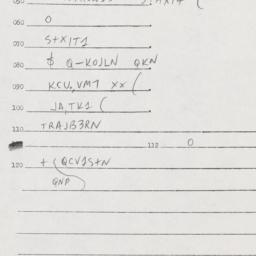 060 O
070 S+XIT1
080 $ Q-KOJLN QKN
090 KCU,VMT XX (
100 JA,TK1 (
110 TRAJB3RN
112 O
120 + (QCV1S+N
QNP